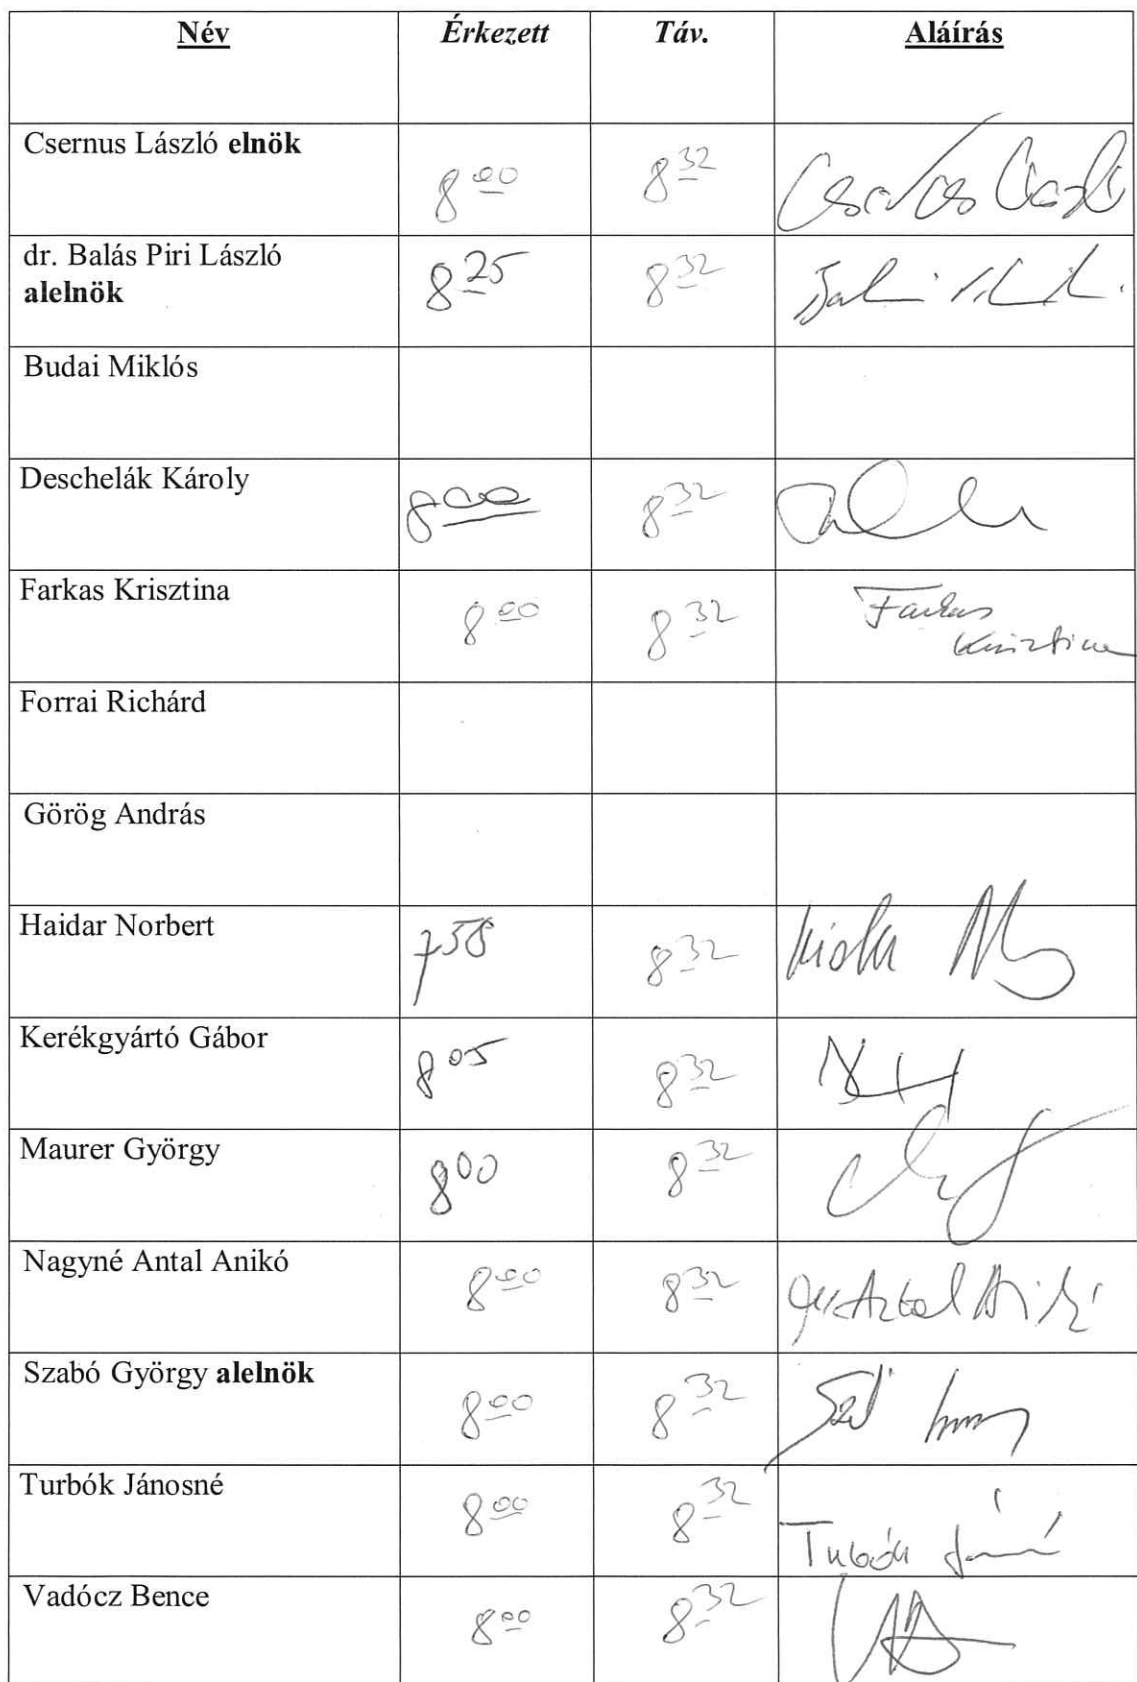 Név Érkezett Táv. Aláírás
Csernus László elnök 8 00 8 32 Csernus László
dr. Balás Piri László 8 25 8 32
alelnök
Budai Miklós
Deschelák Károly 8 00 8 32
Farkas Krisztina 8 00 8 32 Farkas
Krisztina
Forrai Richárd
Görög András
Haidar Norbert 7 58 8 32
Kerékgyártó Gábor 8 05 8 32
Maurer György 8 00 8 32
Nagyné Antal Anikó 8 00 8 32
Szabó György alelnök 8 00 8 32
Turbók Jánosné 8 00 8 32
Vadócz Bence 8 00 8 32